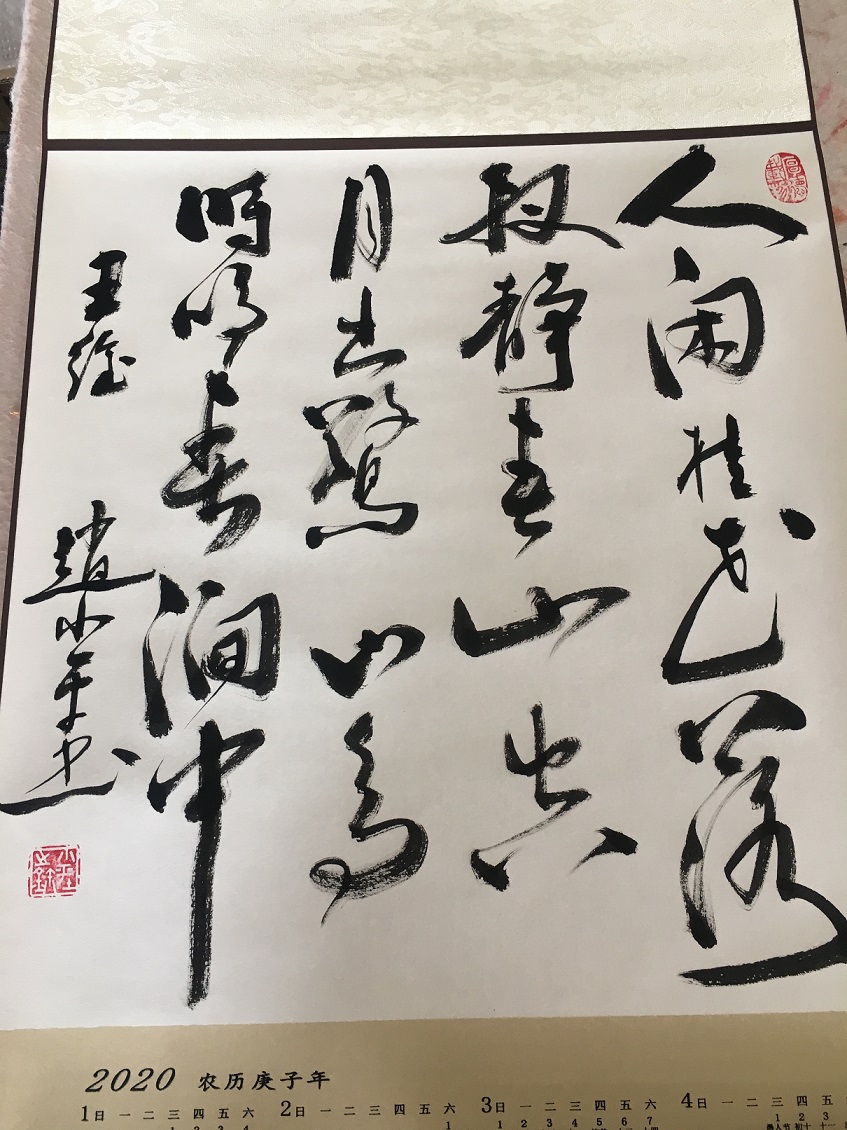 人闲桂花落
夜静春山空
月出驚山鸟
時鸣春涧中
王维
趙小平书
2020 农历庚子年
1日 一 二 三 四 五 六 2日 一 二 三 四 五 六 3日 一 二 三 四 五 六 4日 一 二 三 四 五
1 2 3 4 1 1 2 3 4 5 6 7 1 2 3
愚人节 初十 十一